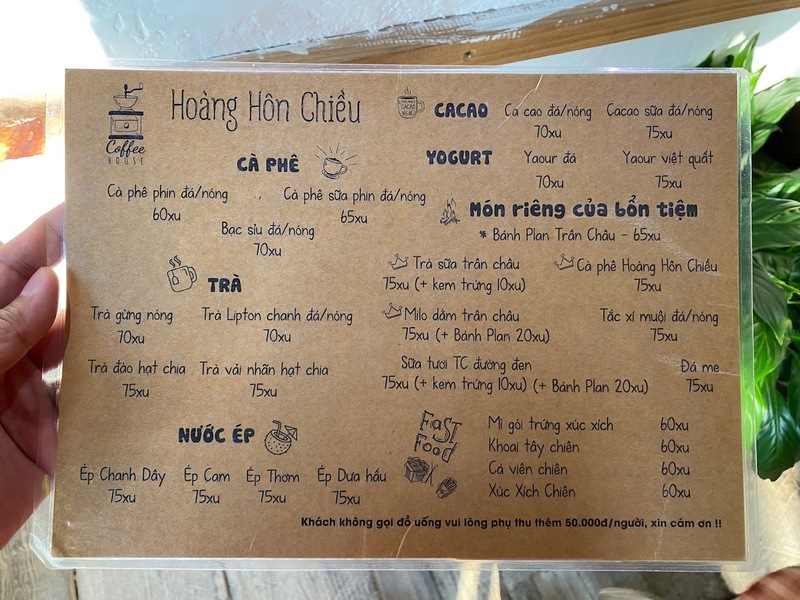 Hoàng Hôn Chiều
Coffee
HOUSE
CÀ PHÊ
Cà phê phin đá/nóng
60xu
Cà phê sữa phin đá/nóng
65xu
Bạc sỉu đá/nóng
70xu
TRÀ
Trà gừng nóng
70xu
Trà Lipton chanh đá/nóng
70xu
Trà đào hạt chia
75xu
Trà vải nhãn hạt chia
75xu
NƯỚC ÉP
Ép Chanh Dây
75xu
Ép Cam
75xu
Ép Thơm
75xu
Ép Dưa hấu
75xu
CACAO
Ca cao đá/nóng
70xu
Cacao sữa đá/nóng
75xu
YOGURT
Yaour đá
70xu
Yaour việt quất
75xu
Món riêng của bổn tiệm
* Bánh Plan Trân Châu - 65xu
Trà sữa trân châu
75xu (+ kem trứng 10xu)
Cà phê Hoàng Hôn Chiều
75xu
Milo dằm trân châu
75xu (+ Bánh Plan 20xu)
Tắc xí muội đá/nóng
75xu
Sữa tươi TC đường đen
75xu (+ kem trứng 10xu) (+ Bánh Plan 20xu)
Đá me
75xu
FaST
Food
Mì gói trứng xúc xích 60xu
Khoai tây chiên 60xu
Cá viên chiên 60xu
Xúc Xích Chiên 60xu
Khách không gọi đồ uống vui lòng phụ thu thêm 50.000đ/người, xin cám ơn !!